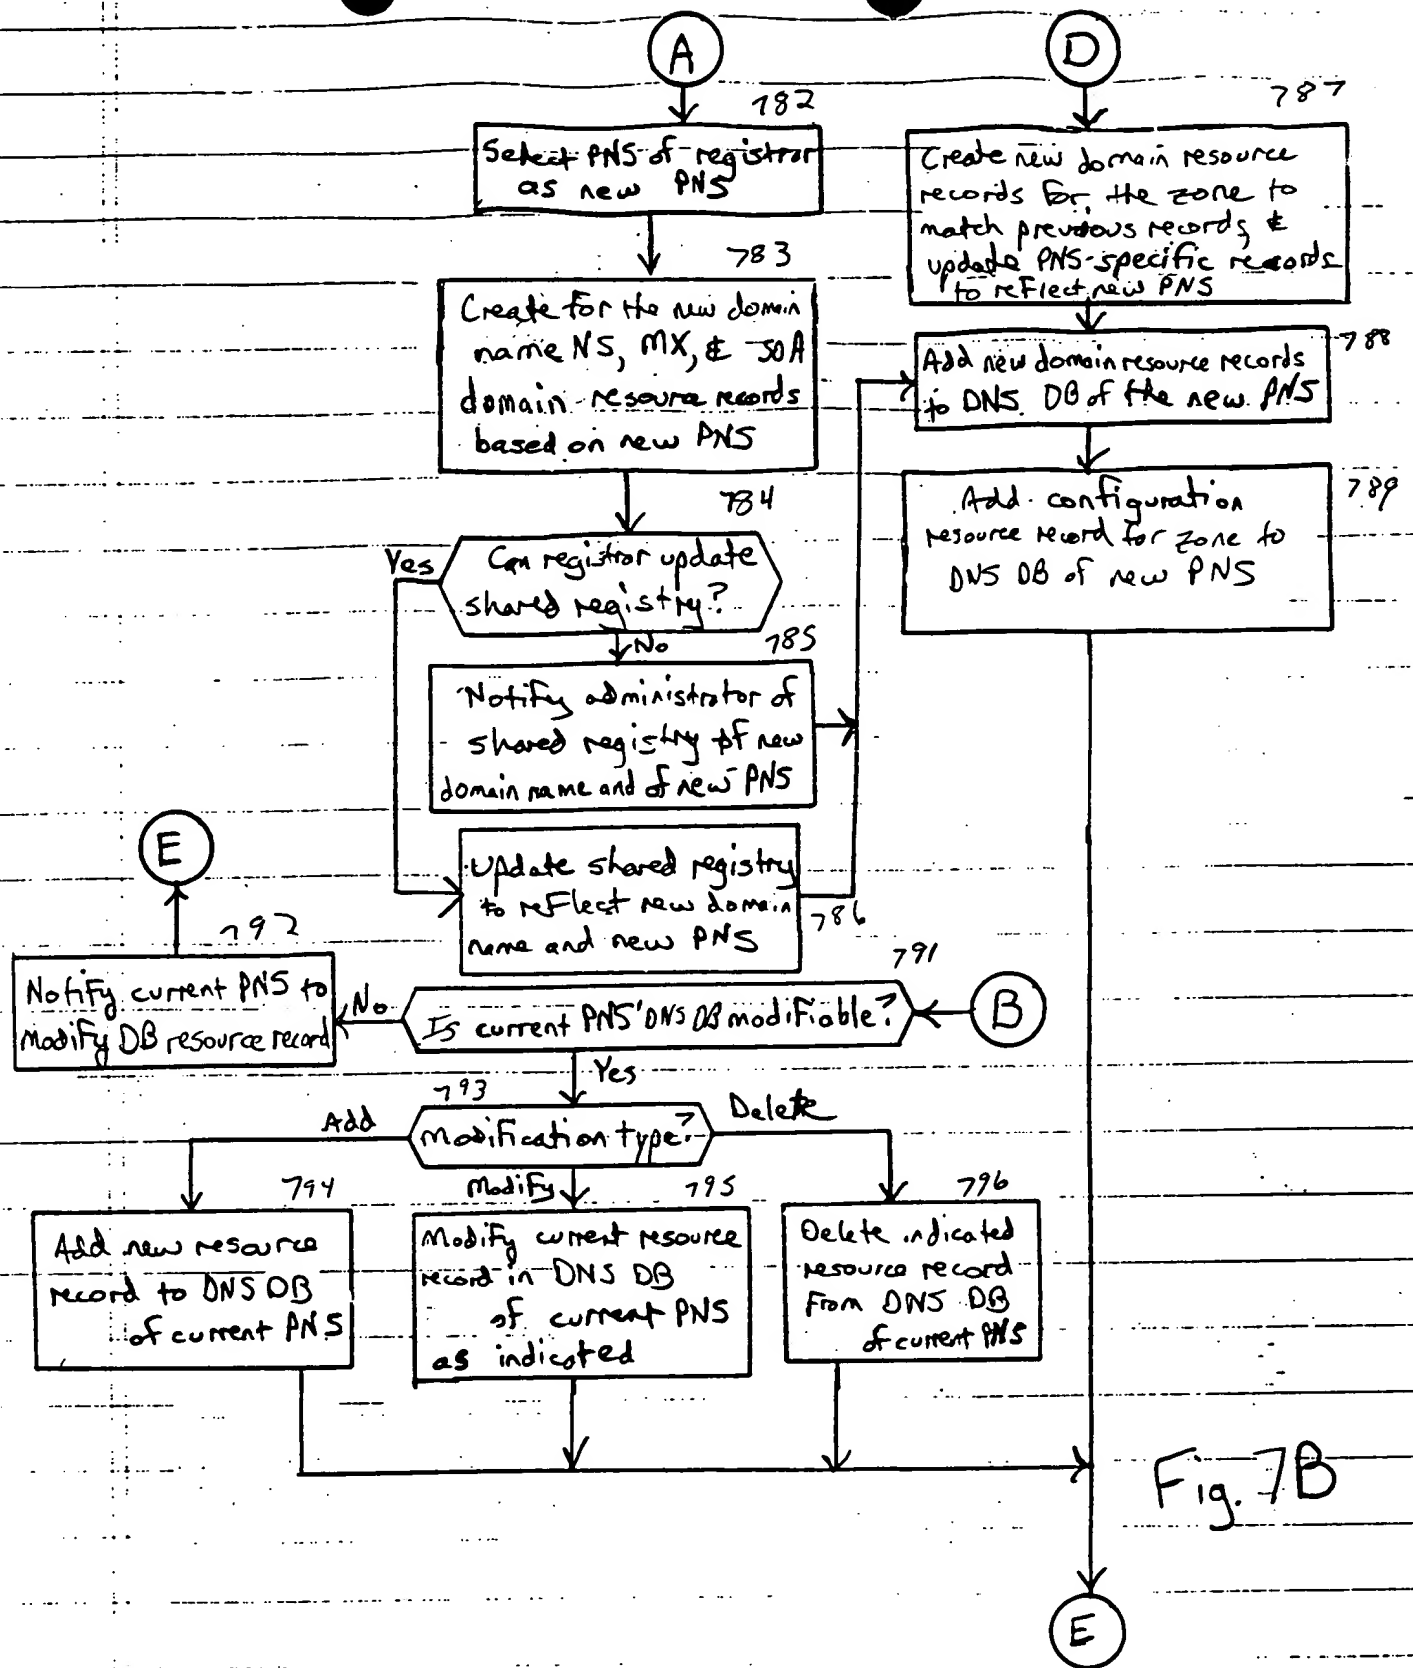 A
782
Select PNS of registrar
as new PNS
783
Create for the new domain
name NS, MX, & SOA
domain resource records
based on new PNS
784
Can registrar update
shared registry?
Yes
No
785
Notify administrator of
shared registry of new
domain name and of new PNS
Update shared registry
to reflect new domain
name and new PNS
786
D
787
Create new domain resource
records for the zone to
match previous records, &
update PNS-specific records
to reflect new PNS
788
Add new domain resource records
to DNS DB of the new PNS
789
Add configuration
resource record for zone to
DNS DB of new PNS
E
792
Notify current PNS to
Modify DB resource record
No
791
Is current PNS' DNS DB modifiable?
B
Yes
793
Modification type?
Add
Modify
Delete
794
Add new resource
record to DNS DB
of current PNS
795
Modify current resource
record in DNS DB
of current PNS
as indicated
796
Delete indicated
resource record
From DNS DB
of current PNS
Fig. 7B
E